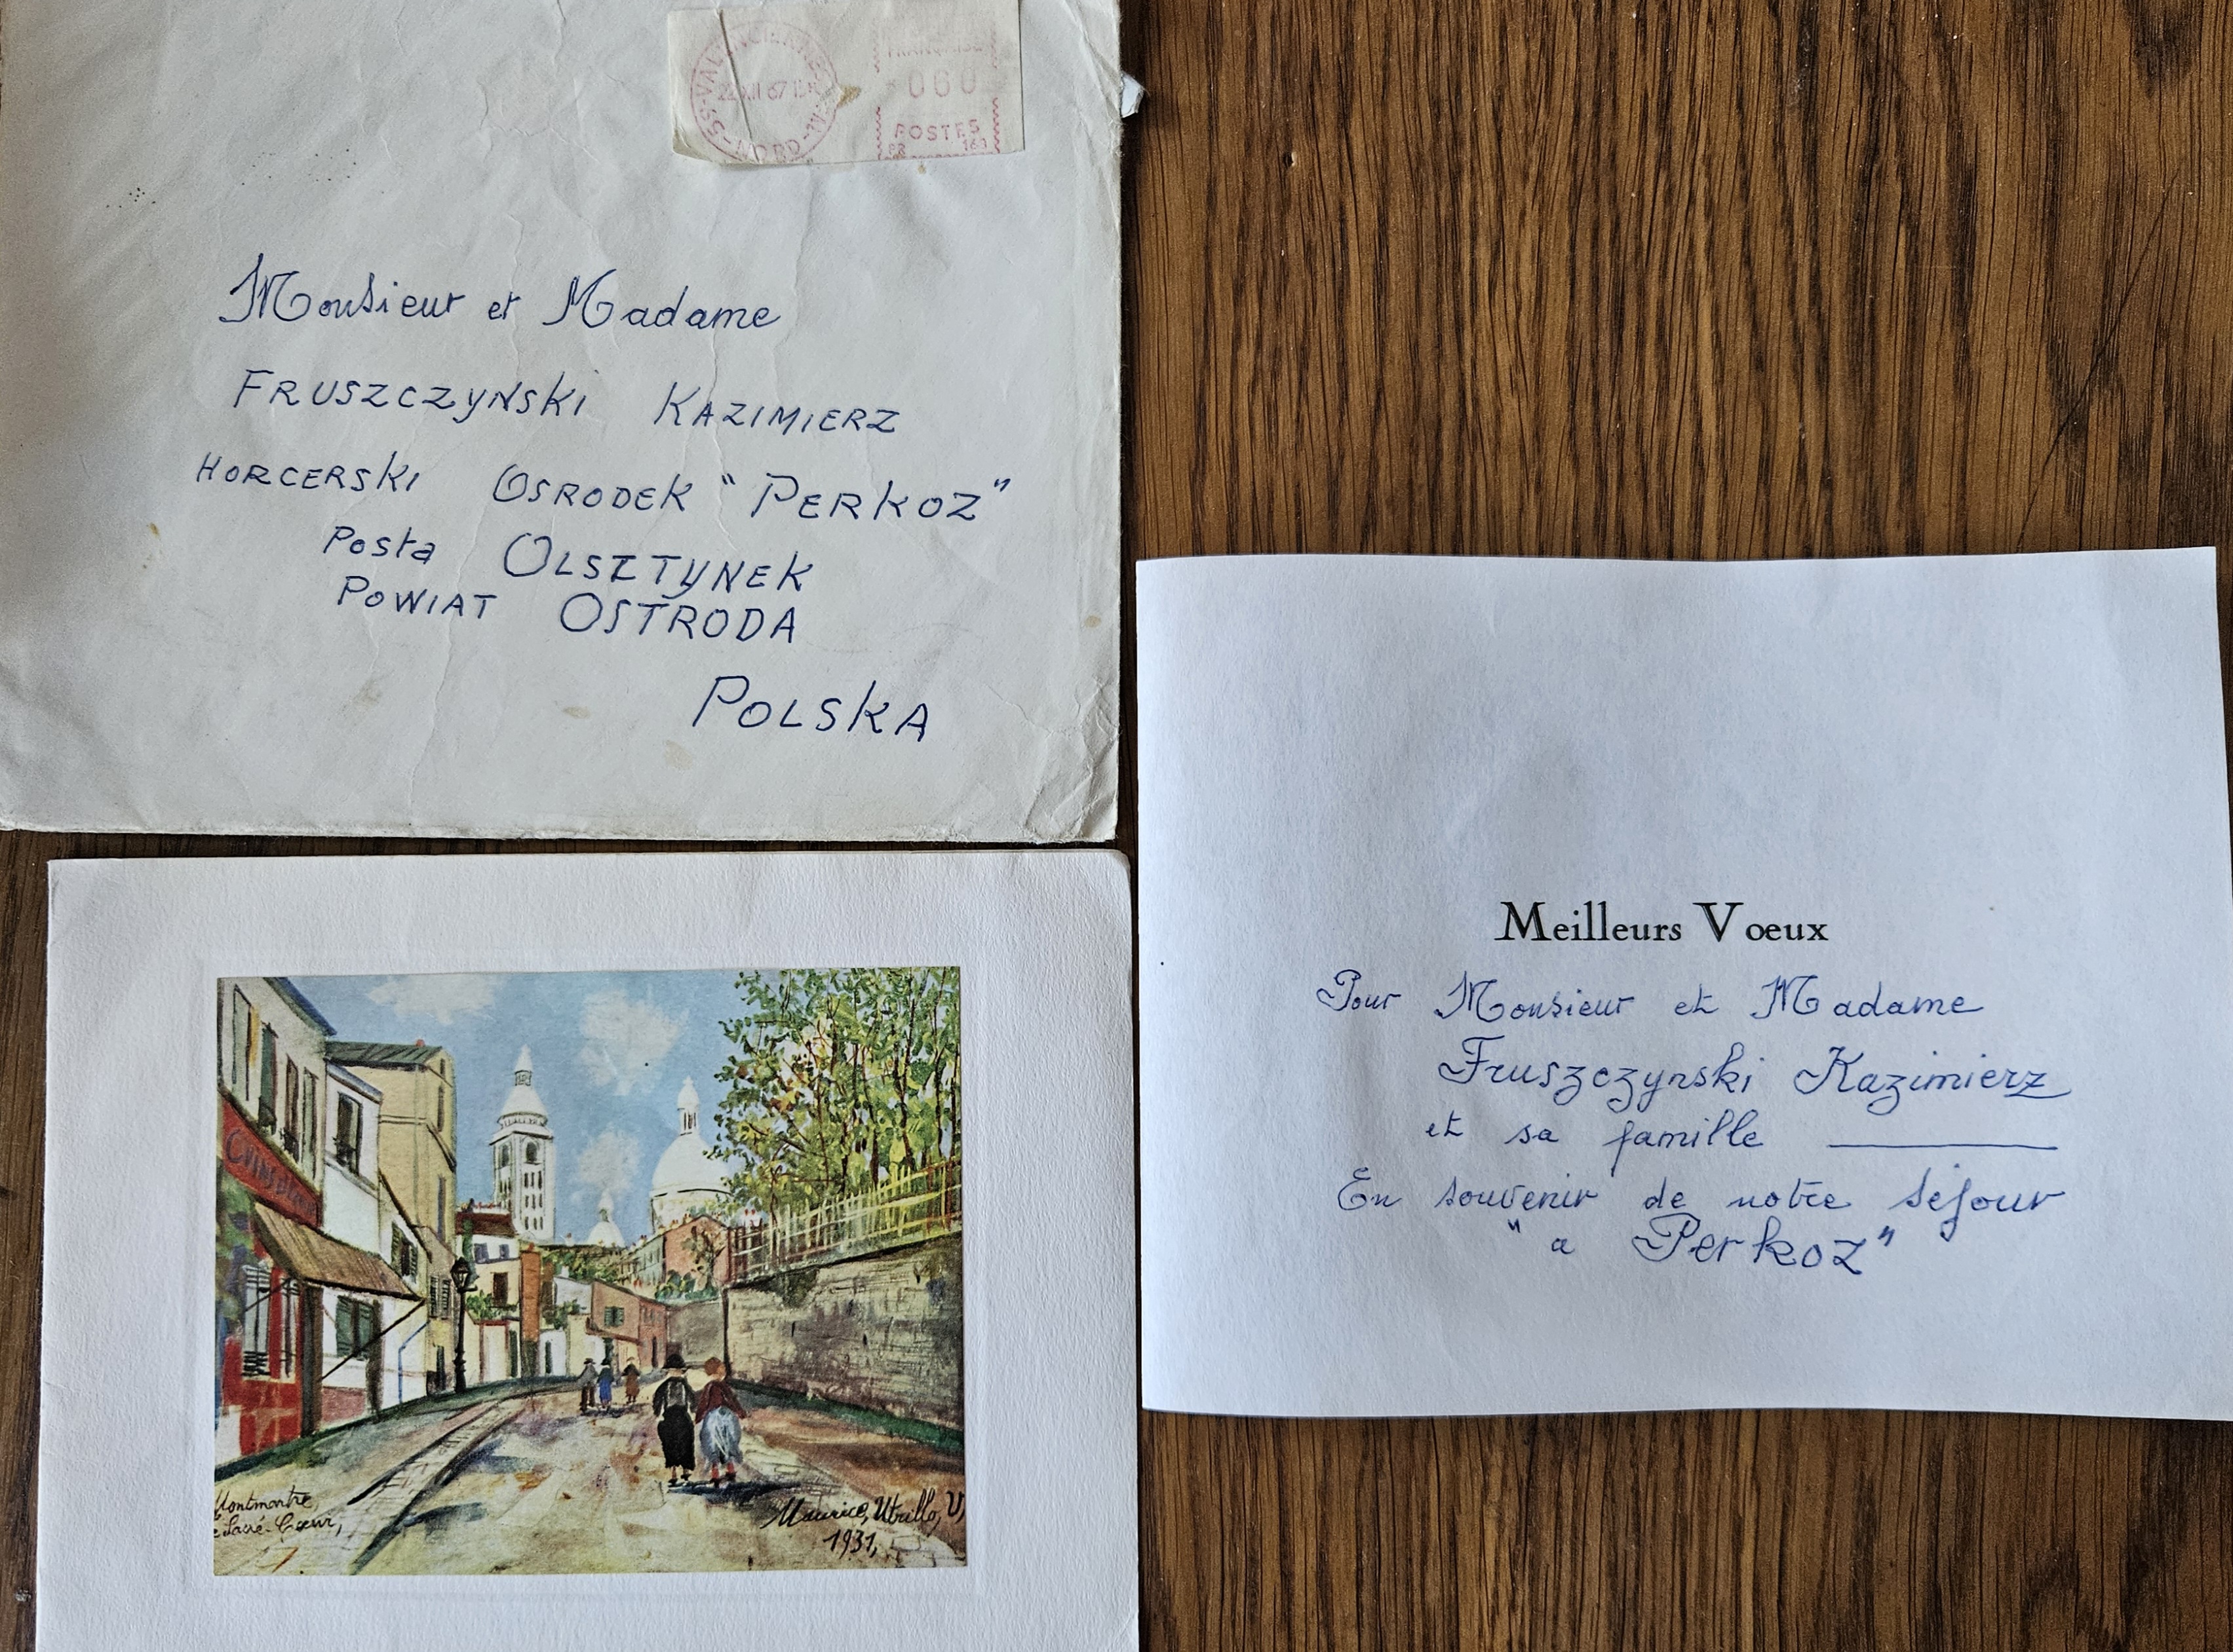 VALENCIENNES
NORD
FRANÇAISE
060
POSTES
Monsieur et Madame
FRUSZCZYNSKI KAZIMIERZ
HORCERSKI OSRODEK "PERKOZ"
Posta OLSZTYNEK
POWIAT OSTRODA
POLSKA
Meilleurs Voeux
Pour Monsieur et Madame
Fruszczynski Kazimierz
et sa famille
En souvenir de notre séjour
"a Perkoz"
Montmartre,
Sacré-Cœur,
Maurice, Utrillo, V,
1931,